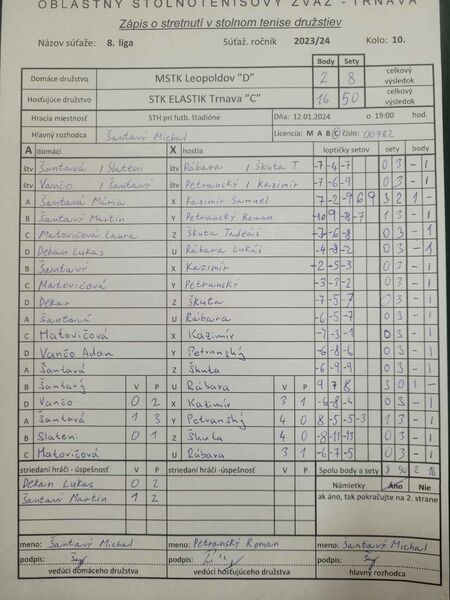 OBLASTNÝ STOLNOTENISOVÝ ZVÄZ - TRNAVA
Zápis o stretnutí v stolnom tenise družstiev
Názov súťaže: 8. liga Súťaž. ročník 2023/24 Kolo: 10.
Body Sety
Domáce družstvo MSTK Leopoldov "D" 2 8 celkový výsledok
Hosťujúce družstvo STK ELASTIK Trnava "C" 16 50 celkový výsledok
Hracia miestnosť STH pri futb. štadióne Dňa: 12.01.2024 o 19:00 hod.
Hlavný rozhodca Šantavý Michal Licencia: M A B C číslo: 00782
A domáci X hostia loptičky setov sety body
štv Šantavá / Slatení štv Rábara / Škuta T. -7 -4 -7 0 3 - 1
štv Vančo / Šantavý štv Petranský / Kazimír -7 -6 -9 0 3 - 1
A Šantavá Mária X Kazimír Samuel 7 -2 -9 6 9 3 2 1 -
B Šantavý Martin Y Petranský Roman -10 9 -8 -7 1 3 - 1
C Matovičová Laura Z Škuta Tadeáš -7 -6 -8 0 3 - 1
D Dekan Lukas U Rábara Lukáš -4 -8 -2 0 3 - 1
B Šantavý X Kazimír -2 -5 -3 0 3 - 1
C Matovičová Y Petranský -3 -8 -2 0 3 - 1
D Dekan Z Škuta -7 -5 -7 0 3 - 1
A Šantavá U Rábara -6 -5 -7 0 3 - 1
C Matovičová X Kazimír -3 -1 0 3 - 1
D Vančo Adan Y Petranský -6 -8 -6 0 3 - 1
A Šantavá Z Škuta -6 -9 -9 0 3 - 1
B Šantavý V P U Rábara V P 9 7 8 3 0 1 -
D Vančo 0 2 X Kazimír 3 1 -6 -8 -4 0 3 - 1
A Šantavá 1 3 Y Petranský 4 0 8 -5 -5 -3 1 3 - 1
B Slatení 0 1 Z Škuta 4 0 -8 -11 -13 0 3 - 1
C Matovičová U Rábara 3 1 -6 -7 -5 0 3 - 1
striedaní hráči - úspešnosť V P striedaní hráči - úspešnosť V P Spolu body a sety 8 50 2 16
Dekan Lukas 0 2 Námietky Áno Nie
Šantavý Martin 1 2 ak áno, tak pokračujte na 2. strane
meno: Šantavý Michal meno: Petranský Roman meno: Šantavý Michal
podpis: podpis: podpis:
vedúci domáceho družstva vedúci hosťujúceho družstva hlavný rozhodca